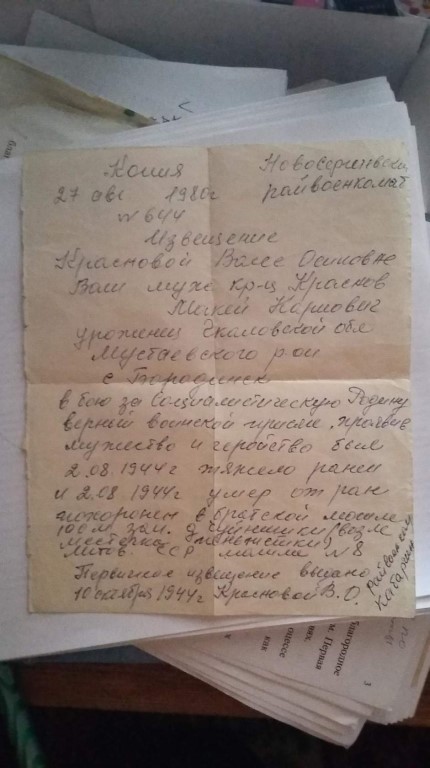 Копия Новосергиевский
27 авг 1980г райвоенкомат
№ 644
Извещение
Красновой Вассе Осиповне
Ваш муж кр-ц Краснов
Макей Карпович
уроженец Чкаловской обл
Мустаевского р-он
с Бородинск
в бою за Социалистическую Родину
верный воинской присяге, проявив
мужество и геройство был
2.08.1944г тяжело ранен
и 2.08 1944г умер от ран
похоронен в братской могиле
100 м зап. д (возле
местечка
Литов ССР могила №8
Первичное извещение выдано
10 октября 1944г Красновой В.О.
райвоенком
благородное
и. Первая
оцессе
как
3